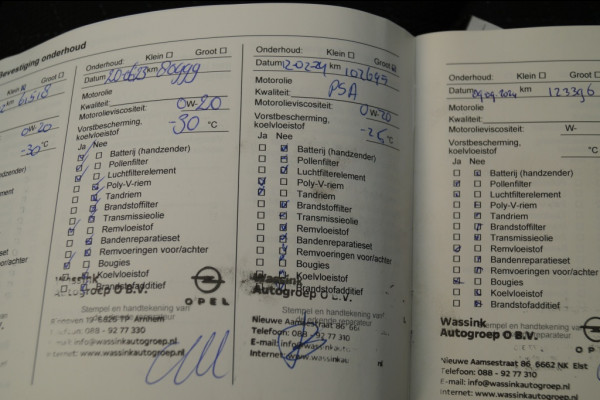 Bevestiging onderhoud
Klein Groot
61418
0W-20
-30°C
Onderhoud: Klein Groot
Datum 20-0623 km
Motorolie
Kwaliteit:
Motorolieviscositeit: 0W-20
Vorstbescherming,
koelvloeistof -30 °C
Ja Nee
Batterij (handzender)
Pollenfilter
Luchtfilterelement
Poly-V-riem
Tandriem
Brandstoffilter
Transmissieolie
Remvloeistof
Bandenreparatieset
Remvoeringen voor/achter
Bougies
Koelvloeistof
Brandstofadditief
Wassink
Autogroep O B.V.
OPEL
Stempel en handtekening van
6825 TP Arnhem
Telefoon: 088 - 92 77 330
E-mail: info@wassinkautogroep.nl
Internet: www.wassinkautogroep.nl
Onderhoud: Klein Groot
Datum km 102645
Motorolie
Kwaliteit: PSA
Motorolieviscositeit: 0W-20
Vorstbescherming,
koelvloeistof °C
Ja Nee
Batterij (handzender)
Pollenfilter
Luchtfilterelement
Poly-V-riem
Tandriem
Brandstoffilter
Transmissieolie
Remvloeistof
Bandenreparatieset
Remvoeringen voor/achter
Bougies
Koelvloeistof
Brandstofadditief
Wassink
Autogroep O B.V.
OPEL
Stempel en handtekening van
Nieuwe Aamsestraat 86
Telefoon: 088 - 92 77 310
E-mail: info@wassink
Internet: www.wassink
Onderhoud: Klein Groot
Datum 09.09.2024 km 123396
Motorolie
Kwaliteit:
Motorolieviscositeit: W-
Vorstbescherming,
koelvloeistof °C
Ja Nee
Batterij (handzender)
Pollenfilter
Luchtfilterelement
Poly-V-riem
Tandriem
Brandstoffilter
Transmissieolie
Remvloeistof
Bandenreparatieset
Remvoeringen voor/achter
Bougies
Koelvloeistof
Brandstofadditief
Wassink
Autogroep O B.V.
Nieuwe Aamsestraat 86, 6662 NK Elst
Telefoon: 088 - 92 77 310
E-mail: info@wassinkautogroep.nl
Internet: www.wassinkautogroep.nl